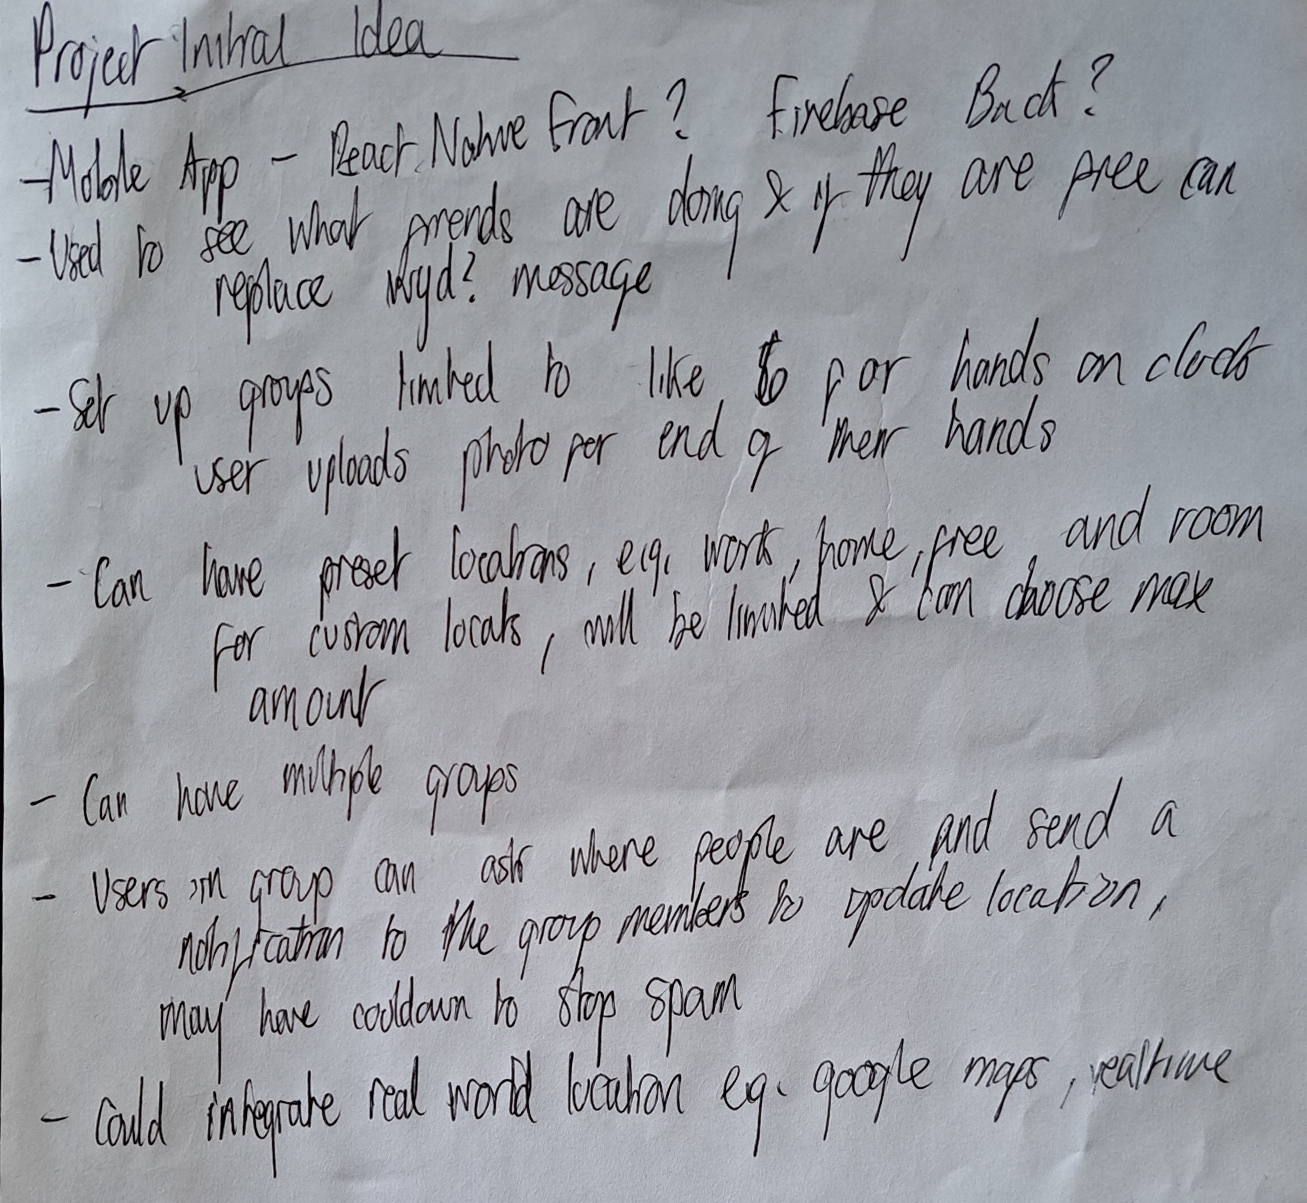 Project Initial Idea
- Mobile App - React Native Front? Firebase Back?
- Used to see what friends are doing & if they are free can
replace wyd? message
- Set up groups limited to like for hands on clock
user uploads photo for end of their hands
- Can have preset locations, e.g. work, home, free, and room
for custom locats, will be limited & can choose max
amount
- Can have multiple groups
- Users in group can ask where people are and send a
notification to the group members to update location,
may have cooldown to stop spam
- Could integrate real world location eg. google maps, realtime